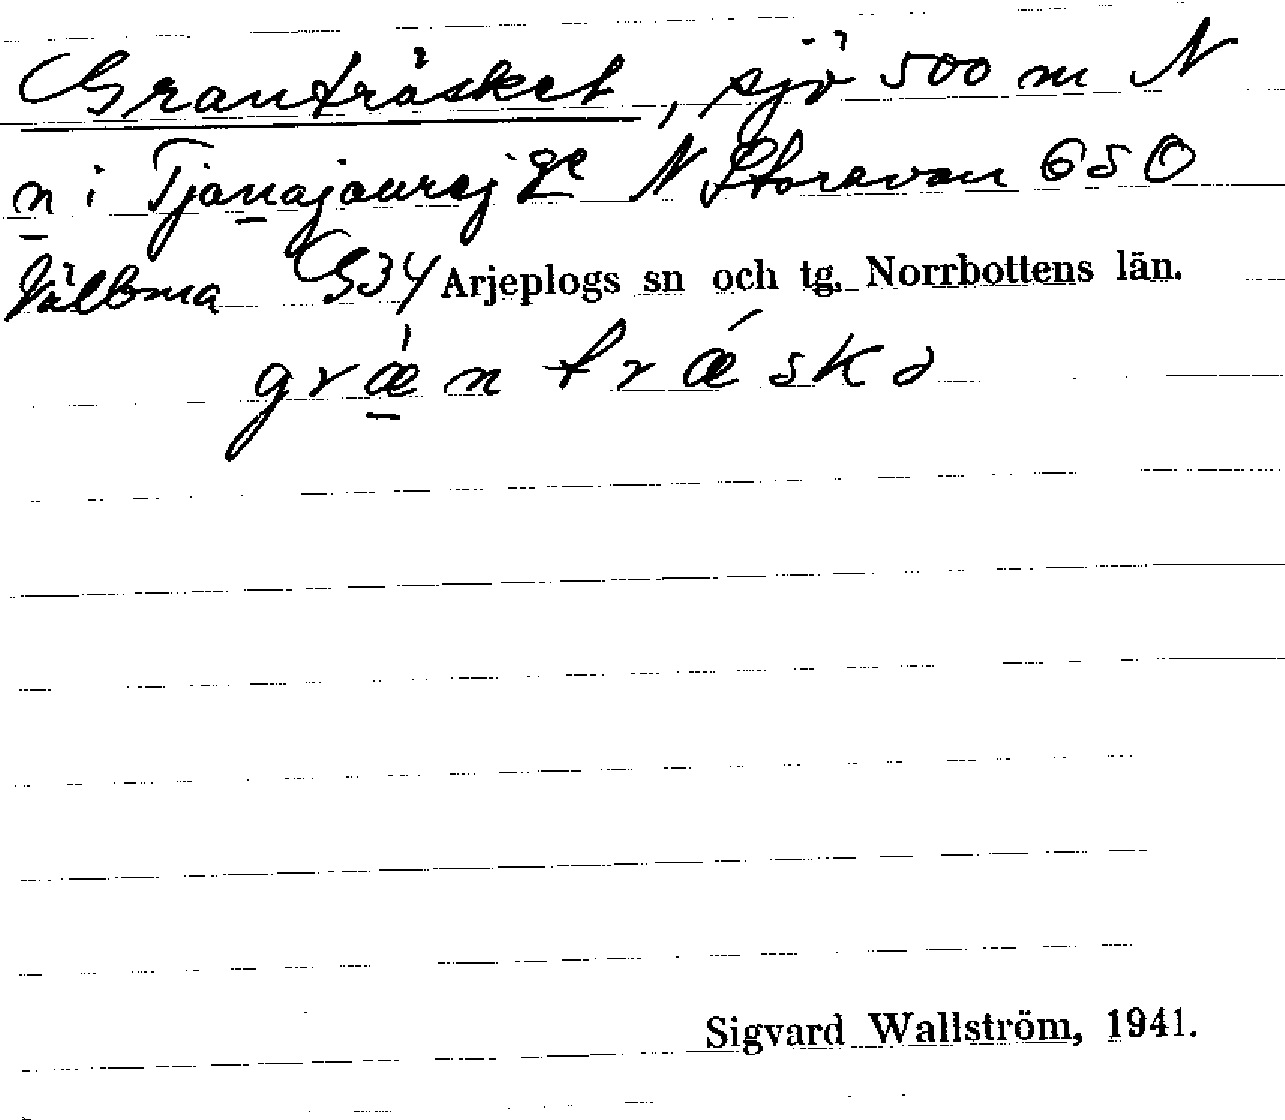 Granträsket, sjö 500 m N
n i Tjanajaurej ge N Storavan 650
Välbma G34 Arjeplogs sn och tg. Norrbottens län.
græ̀n træ´skə
Sigvard Wallström, 1941.